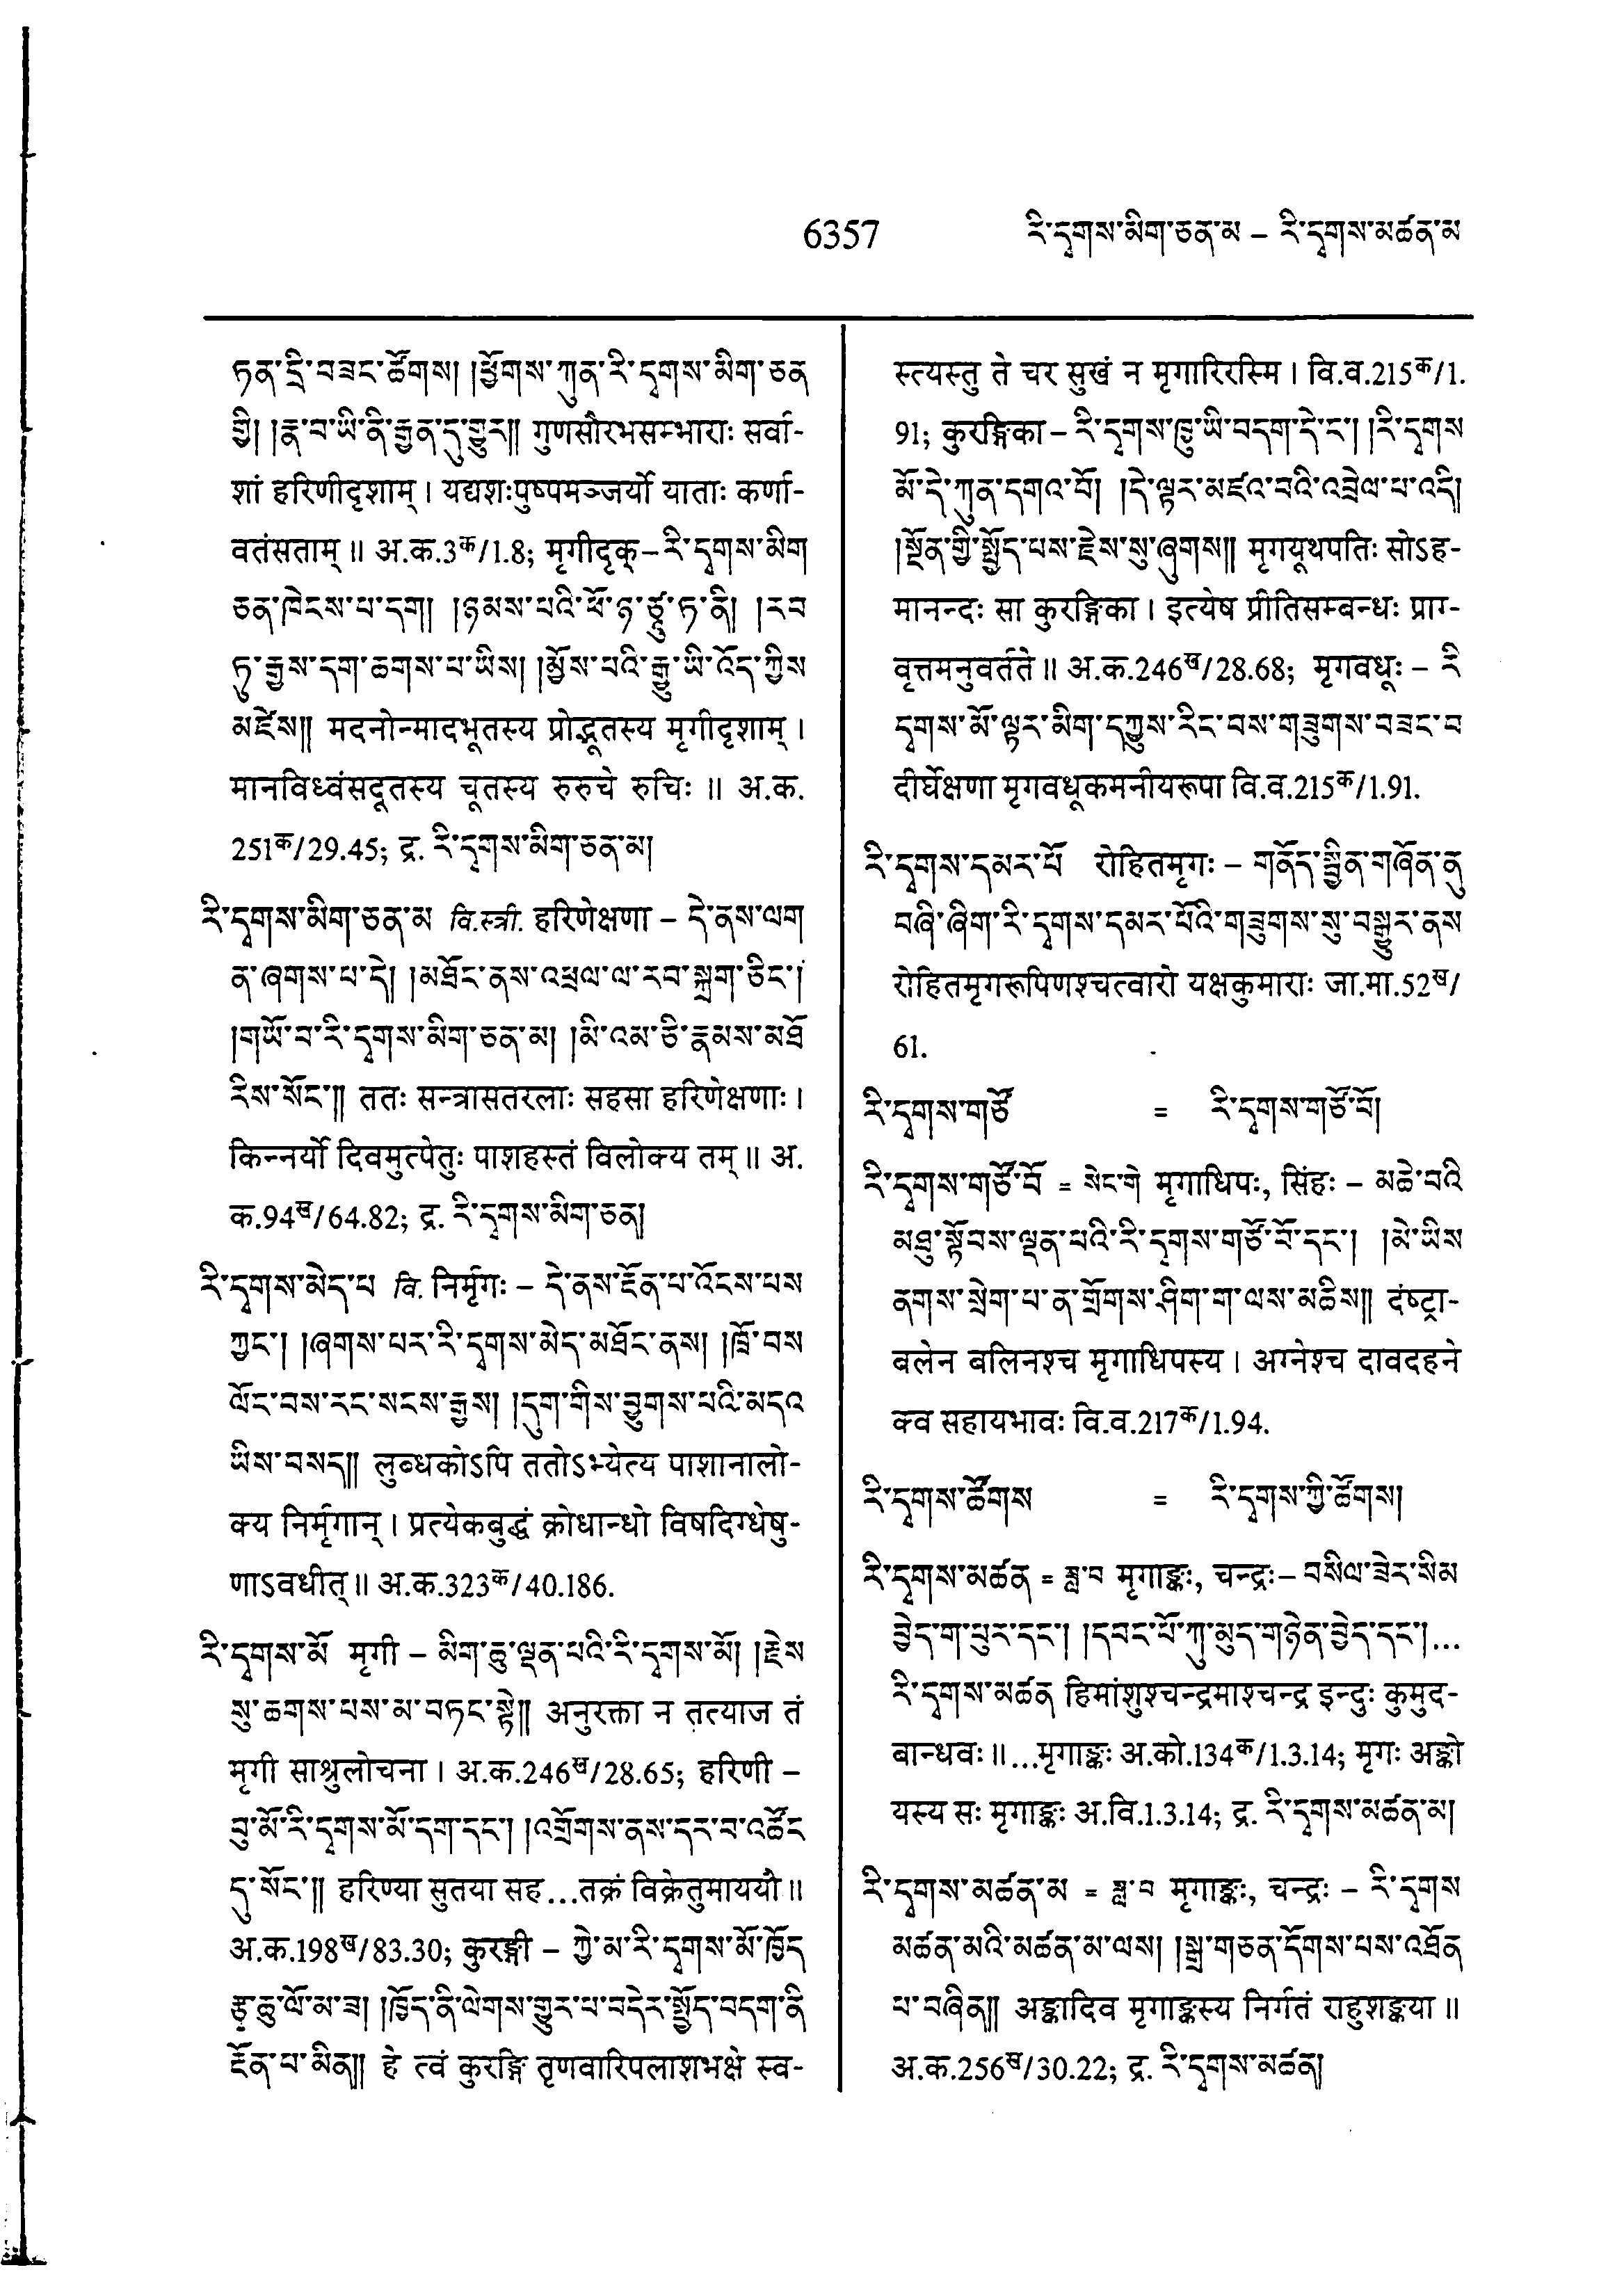 6357 རི་དྭགས་མིག་ཅན་མ – རི་དྭགས་མཚན་མ
ཏན་དྲི་བཟང་ཚོགས། །ཕྱོགས་ཀུན་རི་དྭགས་མིག་ཅན
གྱི། །རྣ་བ་ཡི་ནི་རྒྱན་དུ་གྱུར།། गुणसौरभसम्भाराः सर्वा-
शां हरिणीदृशाम् । यद्यशःपुष्पमञ्जर्यो याताः कर्णा-
वतंसताम् ॥ अ.क.3क/1.8; मृगीदृक् – རི་དྭགས་མིག
ཅན་ཁེངས་པ་དག། །ཉམས་པའི་ཕོ་ཉ་ཙཱུ་ཏ་ནི། །རབ
ཏུ་རྒྱས་དག་ཆགས་པ་ཡིས། །མྱོས་པའི་རྒྱུ་ཡི་འོད་ཀྱིས
མཛེས།། मदनोन्मादभूतस्य प्रोद्भूतस्य मृगीदृशाम् ।
मानविध्वंसदूतस्य चूतस्य रुरुचे रुचिः ॥ अ.क.
251क/29.45; द्र. རི་དྭགས་མིག་ཅན་མ།
རི་དྭགས་མིག་ཅན་མ वि.स्त्री. हरिणेक्षणा – དེ་ནས་ལག
ན་ཞགས་པ་དེ། །མཐོང་ནས་འཕྲལ་ལ་རབ་སྐྲག་ཅིང་།
།གཡོ་བ་རི་དྭགས་མིག་ཅན་མ། །མི་འམ་ཅི་རྣམས་མཐོ
རིས་སོང་།། ततः सन्त्रासतरलाः सहसा हरिणेक्षणाः ।
किन्नर्यो दिवमुत्पेतुः पाशहस्तं विलोक्य तम् ॥ अ.
क.94ख/64.82; द्र. རི་དྭགས་མིག་ཅན།
རི་དྭགས་མེད་པ वि. निर्मृगः – དེ་ནས་རྔོན་པ་འོངས་པས
ཀྱང་། །ཞགས་པར་རི་དྭགས་མེད་མཐོང་ནས། །ཁྲོ་བས
ལོང་བས་རང་སངས་རྒྱས། །དུག་གིས་བྱུགས་པའི་མདའ
ཡིས་བསད།། लुब्धकोऽपि ततोऽभ्येत्य पाशानालो-
क्य निर्मृगान् । प्रत्येकबुद्धं क्रोधान्धो विषदिग्धेषु-
णाऽवधीत् ॥ अ.क.323क/40.186.
རི་དྭགས་མོ मृगी – མིག་ཆུ་ལྡན་པའི་རི་དྭགས་མོ། །རྗེས
སུ་ཆགས་པས་མ་བཏང་སྟེ།། अनुरक्ता न तत्याज तं
मृगी साश्रुलोचना । अ.क.246ख/28.65; हरिणी –
བུ་མོ་རི་དྭགས་མོ་དག་དང་། །འགྲོགས་ནས་དར་བ་འཚོང
དུ་སོང་།། हरिण्या सुतया सह...तक्रं विक्रेतुमाययौ ॥
अ.क.198ख/83.30; कुरङ्गी – ཀྱེ་མ་རི་དྭགས་མོ་ཁྱོད
རྩྭ་ཆུ་ལོ་མ་ཟ། །ཁྱོད་ནི་ལེགས་གྱུར་པ་བདེར་སྤྱོད་བདག་ནི
རྔོན་པ་མིན།། हे त्वं कुरङ्गि तृणवारिपलाशभक्षे स्व-
स्त्यस्तु ते चर सुखं न मृगारिरस्मि । वि.व.215क/1.
91; कुरङ्गिका – རི་དྭགས་ཁྱུ་ཡི་བདག་དེ་ང་། །རི་དྭགས
མོ་དེ་ཀུན་དགའ་བོ། །དེ་ལྟར་མཛའ་བའི་འབྲེལ་པ་འདི།
།སྔོན་གྱི་སྤྱོད་པས་རྗེས་སུ་ཞུགས།། मृगयूथपतिः सोऽह-
मानन्दः सा कुरङ्गिका । इत्येष प्रीतिसम्बन्धः प्राग्-
वृत्तमनुवर्तते ॥ अ.क.246ख/28.68; मृगवधूः – རི
དྭགས་མོ་ལྟར་མིག་དཀྱུས་རིང་བས་གཟུགས་བཟང་བ
दीर्घेक्षणा मृगवधूकमनीयरूपा वि.व.215क/1.91.
རི་དྭགས་དམར་པོ रोहितमृगः – གནོད་སྦྱིན་གཞོན་ནུ
བཞི་ཞིག་རི་དྭགས་དམར་པོའི་གཟུགས་སུ་བསྒྱུར་ནས
रोहितमृगरूपिणश्चत्वारो यक्षकुमाराः जा.मा.52ख/
61.
རི་དྭགས་གཙོ = རི་དྭགས་གཙོ་བོ།
རི་དྭགས་གཙོ་བོ = སེང་གེ मृगाधिपः, सिंहः – མཆེ་བའི
མཐུ་སྟོབས་ལྡན་པའི་རི་དྭགས་གཙོ་བོ་དང་། །མེ་ཡིས
ནགས་སྲེག་པ་ན་གྲོགས་ཤིག་ག་ལས་མཆིས།། दंष्ट्रा-
बलेन बलिनश्च मृगाधिपस्य । अग्नेश्च दावदहने
क्व सहायभावः वि.व.217क/1.94.
རི་དྭགས་ཚོགས = རི་དྭགས་ཀྱི་ཚོགས།
རི་དྭགས་མཚན = ཟླ་བ मृगाङ्कः, चन्द्रः – བསིལ་ཟེར་སིམ
བྱེད་ག་པུར་དང་། །དབང་པོ་ཀུ་མུད་གཉེན་བྱེད་དང་།...
རི་དྭགས་མཚན हिमांशुश्चन्द्रमाश्चन्द्र इन्दुः कुमुद-
बान्धवः ॥...मृगाङ्कः अ.को.134क/1.3.14; मृगः अङ्को
यस्य सः मृगाङ्कः अ.वि.1.3.14; द्र. རི་དྭགས་མཚན་མ།
རི་དྭགས་མཚན་མ = ཟླ་བ मृगाङ्कः, चन्द्रः – རི་དྭགས
མཚན་མའི་མཚན་མ་ལས། །སྒྲ་གཅན་དོགས་པས་འཐོན
པ་བཞིན།། अङ्कादिव मृगाङ्कस्य निर्गतं राहुशङ्कया ॥
अ.क.256ख/30.22; द्र. རི་དྭགས་མཚན།